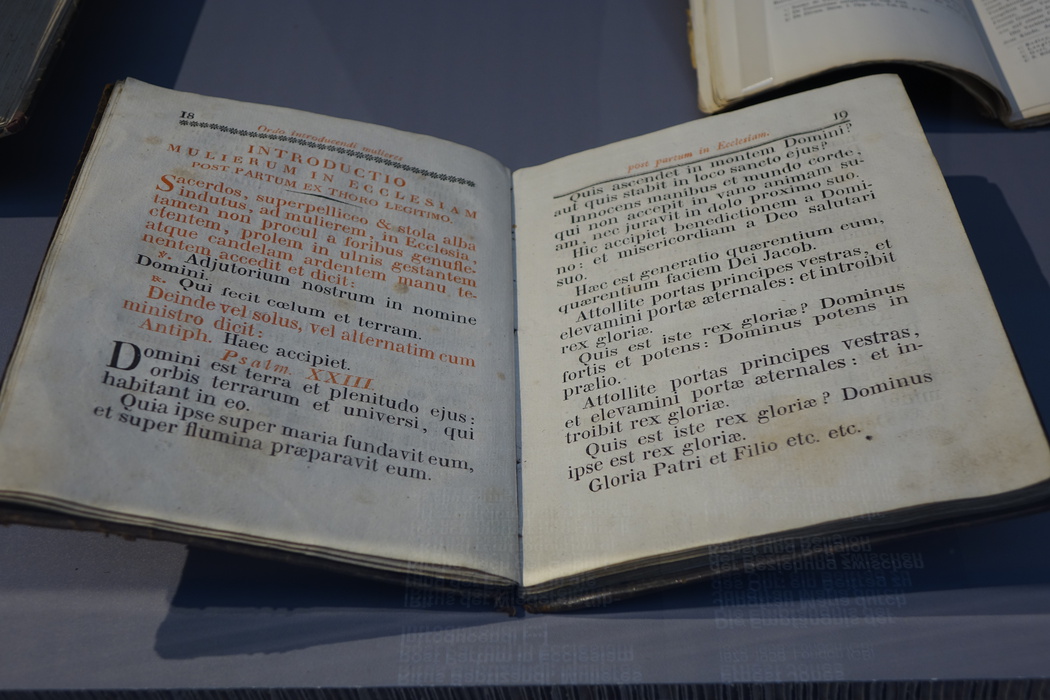 18
Ordo introducendi mulieres
INTRODUCTIO
MULIERUM IN ECCLESIAM
POST PARTUM EX THORO LEGITIMO.
Sacerdos, superpelliceo & stola alba
indutus, ad mulierem, in Ecclesia,
tamen non procul a foribus genufle-
ctentem, prolem in ulnis gestantem
atque candelam ardentem manu te-
nentem accedit et dicit:
℣. Adjutorium nostrum in nomine
Domini.
℟. Qui fecit cœlum et terram.
Deinde vel solus, vel alternatim cum
ministro dicit:
Antiph. Haec accipiet.
Psalm. XXIII.
Domini est terra et plenitudo ejus:
orbis terrarum et universi, qui
habitant in eo.
Quia ipse super maria fundavit eum,
et super flumina præparavit eum.
19
post partum in Ecclesiam.
Quis ascendet in montem Domini?
aut quis stabit in loco sancto ejus?
Innocens manibus et mundo corde,
qui non accepit in vano animam su-
am, nec juravit in dolo proximo suo.
Hic accipiet benedictionem a Domi-
no: et misericordiam a Deo salutari
suo.
Hæc est generatio quærentium eum,
quærentium faciem Dei Jacob.
Attollite portas principes vestras, et
elevamini portæ æternales: et introibit
rex gloriæ.
Quis est iste rex gloriæ? Dominus
fortis et potens: Dominus potens in
prælio.
Attollite portas principes vestras,
et elevamini portæ æternales: et in-
troibit rex gloriæ.
Quis est iste rex gloriæ? Dominus
ipse est rex gloriæ.
Gloria Patri et Filio etc. etc.